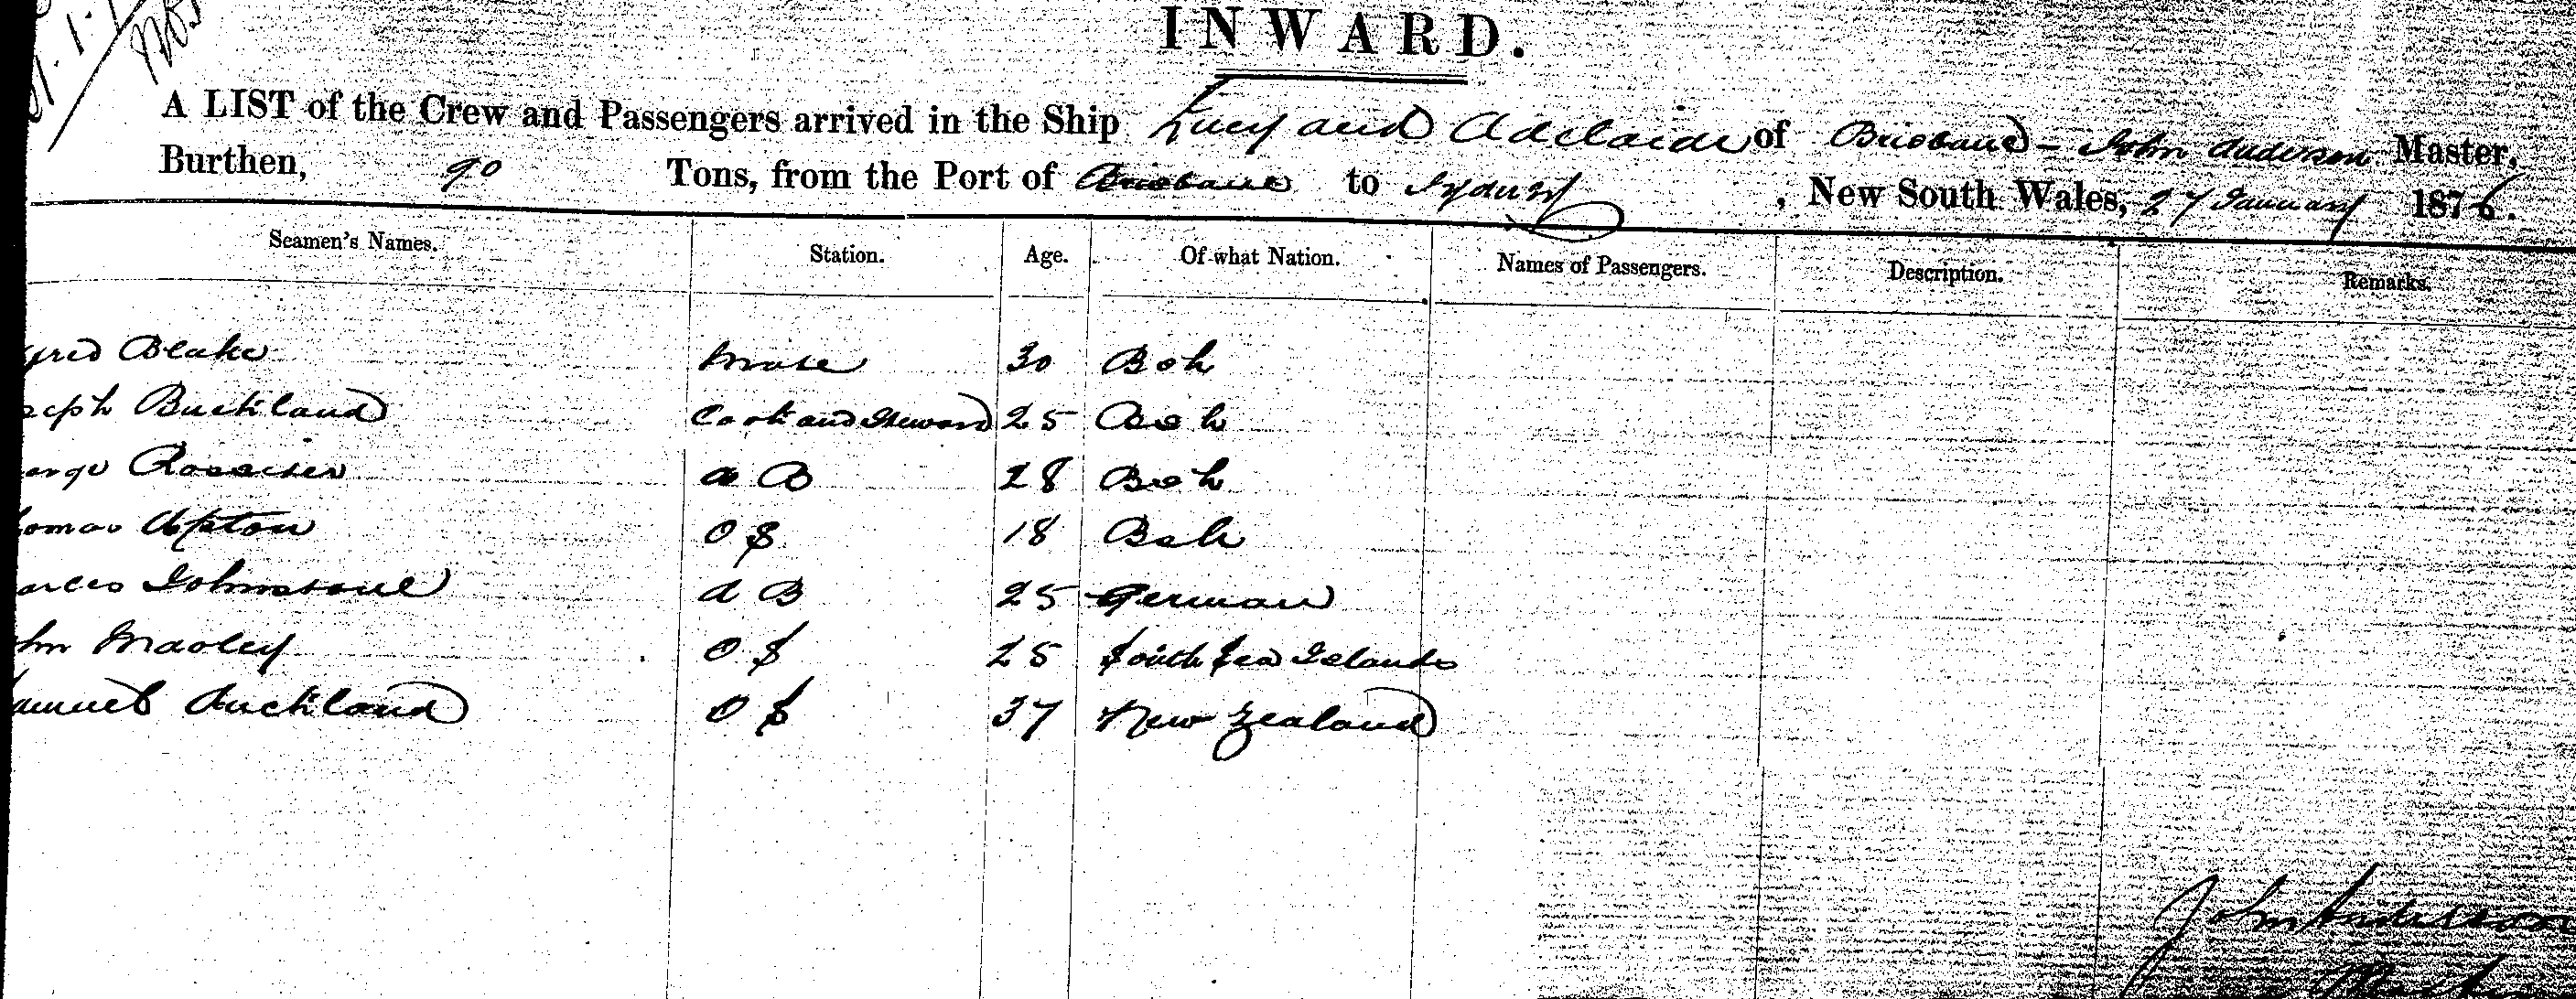 INWARD.
A LIST of the Crew and Passengers arrived in the Ship Lucy and Adelaide of Brisbane - John Anderson Master,
Burthen, 90 Tons, from the Port of Brisbane to Sydney, New South Wales, 27 January 1876.
Seamen's Names. Station. Age. Of what Nation. Names of Passengers. Description. Remarks.
Blake Mate 30 Bsh
Buckland Cook and Steward 25 Bsh
Rossiter A B 28 Bsh
Upton O S 18 Bsh
Johnstone A B 25 German
O S 25 South Sea Islands
Auckland O S 37 New Zealand
John Anderson